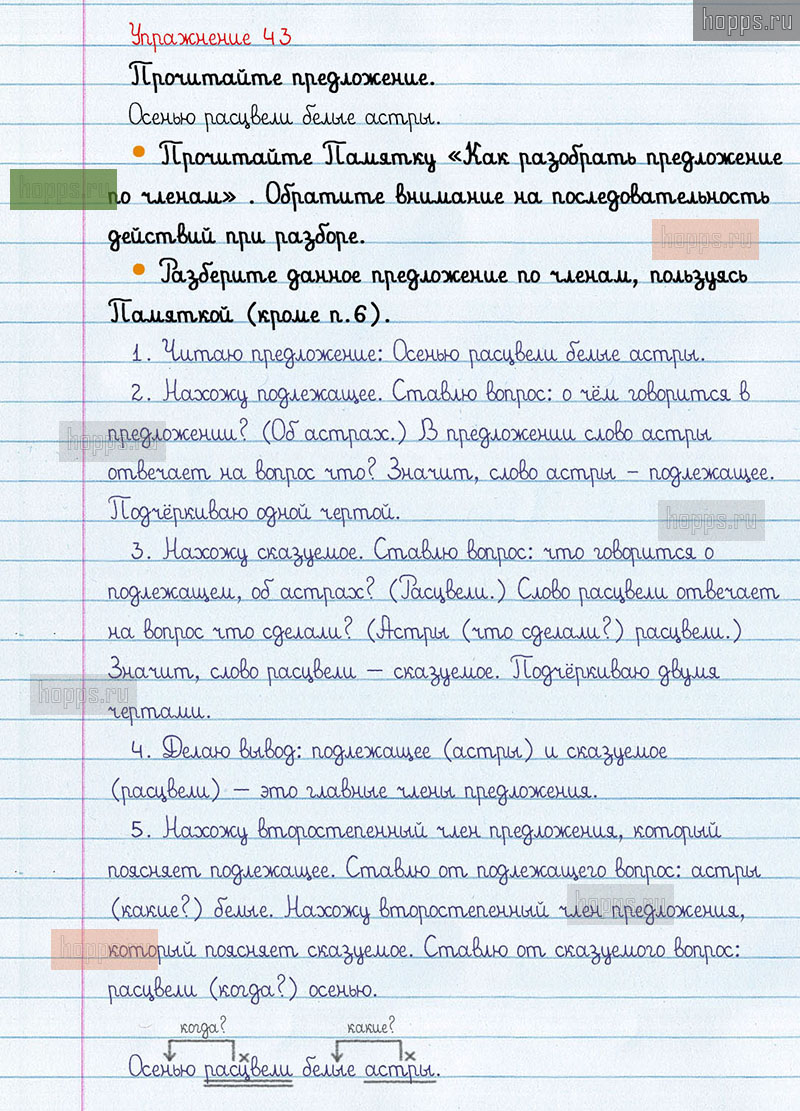 hopps.ru
Упражнение 43
Прочитайте предложение.
Осенью расцвели белые астры.
• Прочитайте Памятку «Как разобрать предложение
hopps.ru
по членам» . Обратите внимание на последовательность
действий при разборе.
hopps.ru
• Разберите данное предложение по членам, пользуясь
Памяткой (кроме п.6).
1. Читаю предложение: Осенью расцвели белые астры.
2. Нахожу подлежащее. Ставлю вопрос: о чём говорится в
hopps.ru
предложении? (Об астрах.) В предложении слово астры
отвечает на вопрос что? Значит, слово астры – подлежащее.
Подчёркиваю одной чертой.
hopps.ru
3. Нахожу сказуемое. Ставлю вопрос: что говорится о
подлежащем, об астрах? (Расцвели.) Слово расцвели отвечает
на вопрос что сделали? (Астры (что сделали?) расцвели.)
Значит, слово расцвели — сказуемое. Подчёркиваю двумя
hopps.ru
чертами.
4. Делаю вывод: подлежащее (астры) и сказуемое
(расцвели) — это главные члены предложения.
5. Нахожу второстепенный член предложения, который
поясняет подлежащее. Ставлю от подлежащего вопрос: астры
hopps.ru
(какие?) белые. Нахожу второстепенный член предложения,
hopps.ru
который поясняет сказуемое. Ставлю от сказуемого вопрос:
расцвели (когда?) осенью.
когда? какие?
х х
Осенью расцвели белые астры.